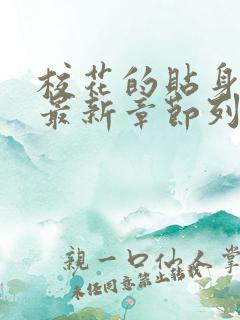 校花的贴身
最新章节列
親一口仙人掌
未经同意禁止转载